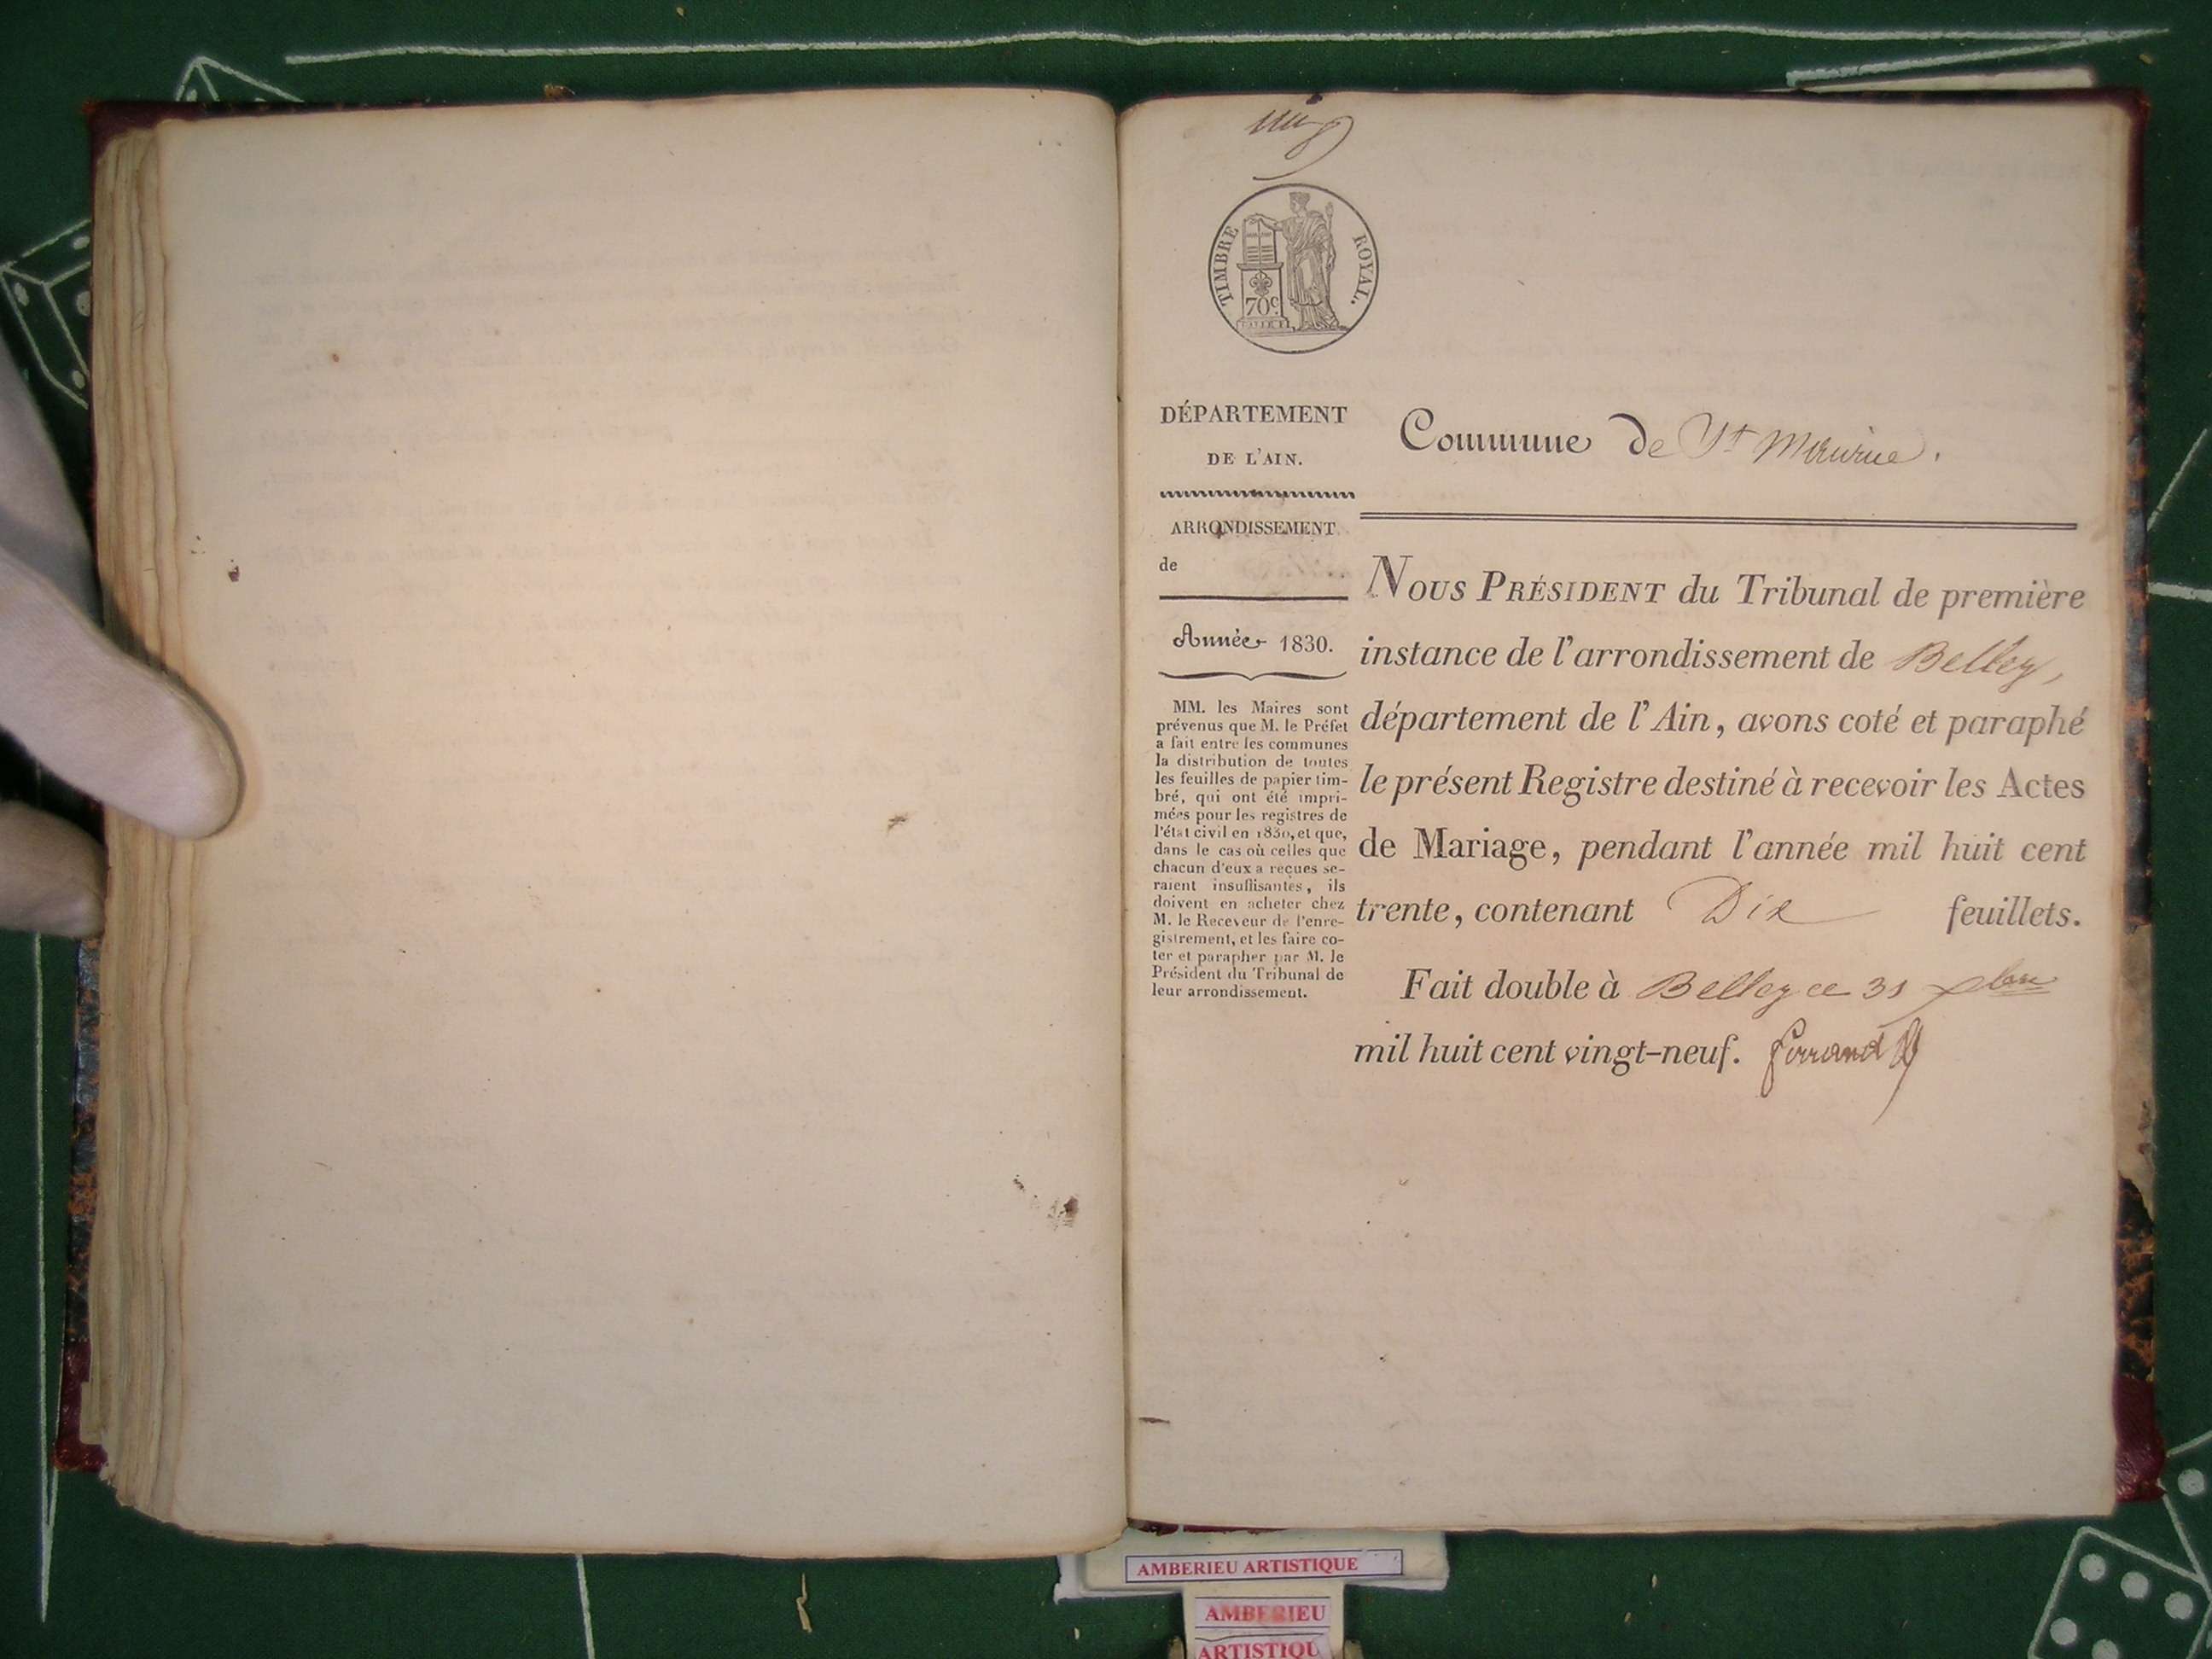 TIMBRE ROYAL.
70c.
DÉPARTEMENT
DE L'AIN.
ARRONDISSEMENT
de
Année 1830.
MM. les Maires sont
prévenus que M. le Préfet
a fait entre les communes
la distribution de toutes
les feuilles de papier tim-
bré, qui ont été impri-
mées pour les registres de
l'état civil en 1830, et que,
dans le cas où celles que
chacun d'eux a reçues se-
raient insuffisantes, ils
doivent en acheter chez
M. le Receveur de l'enre-
gistrement, et les faire co-
ter et parapher par M. le
Président du Tribunal de
leur arrondissement.
Commune de St
NOUS PRÉSIDENT du Tribunal de première
instance de l'arrondissement de Belley,
département de l'Ain, avons coté et paraphé
le présent Registre destiné à recevoir les Actes
de Mariage, pendant l'année mil huit cent
trente, contenant Dix feuillets.
Fait double à Belley ce 31 xbre
mil huit cent vingt-neuf.
AMBERIEU ARTISTIQUE
AMBERIEU
ARTISTIQU